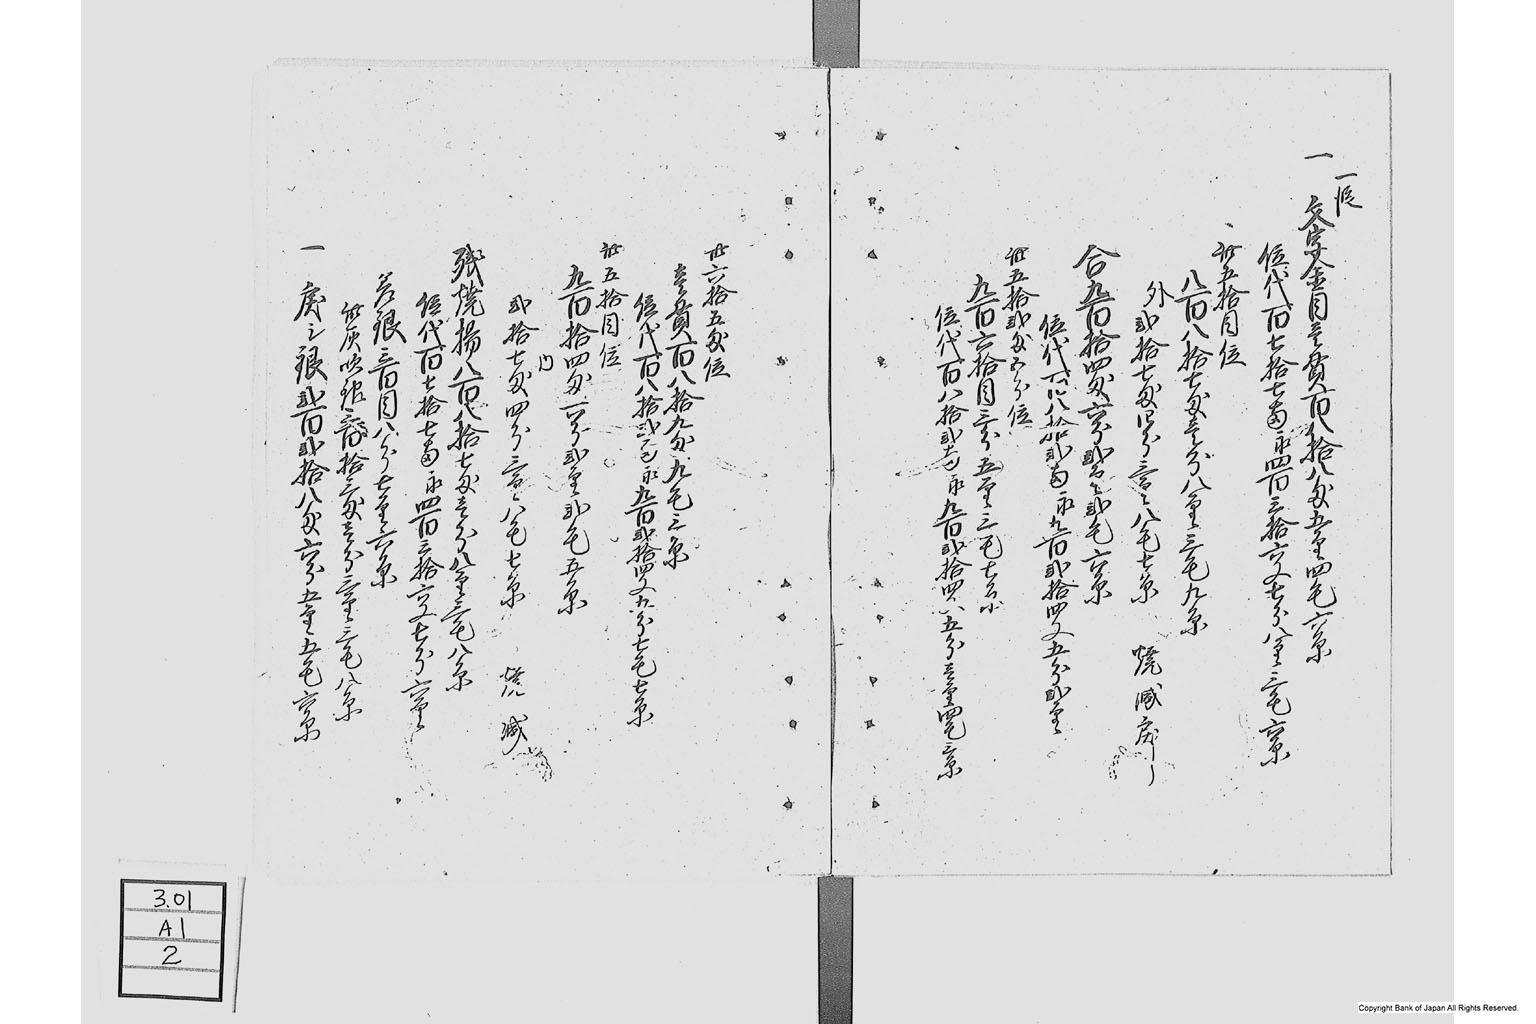 一文字金目壱貫百八拾八匁五厘四毛六糸
位代百七拾七両永四百三拾六文七分八厘三毛六糸
此五拾目位
八百八拾七匁壱分八厘三毛九糸
外弐拾七匁四分三厘八毛七糸 焼減戻り
合九百拾四匁六分弐厘弐毛六糸
位代百八拾弐両永九百弐拾四文五分弐厘
此五拾弐匁五分位
九百六拾目三分五厘三毛七糸
位代百八拾弐両永九百弐拾四文五分壱厘四毛三糸
此六拾五匁位
壱貫百八拾九匁九毛三糸
位代百八拾弐両永九百弐拾四文五分七毛七糸
此五拾目位
九百拾四匁一分弐厘弐毛五糸
内
弐拾七匁四分三厘八毛七糸 焼減
残焼揚八百八拾七匁壱分八厘三毛八糸
位代百七拾七両永四百三拾六文七分六厘
差銀三百目八分七厘六糸
此灰吹銀三百拾三匁壱分三厘三毛八糸
一戻シ銀弐百弐拾八匁六分五厘五毛六糸
3.01
A1
2
Copyright Bank of Japan All Rights Reserved.